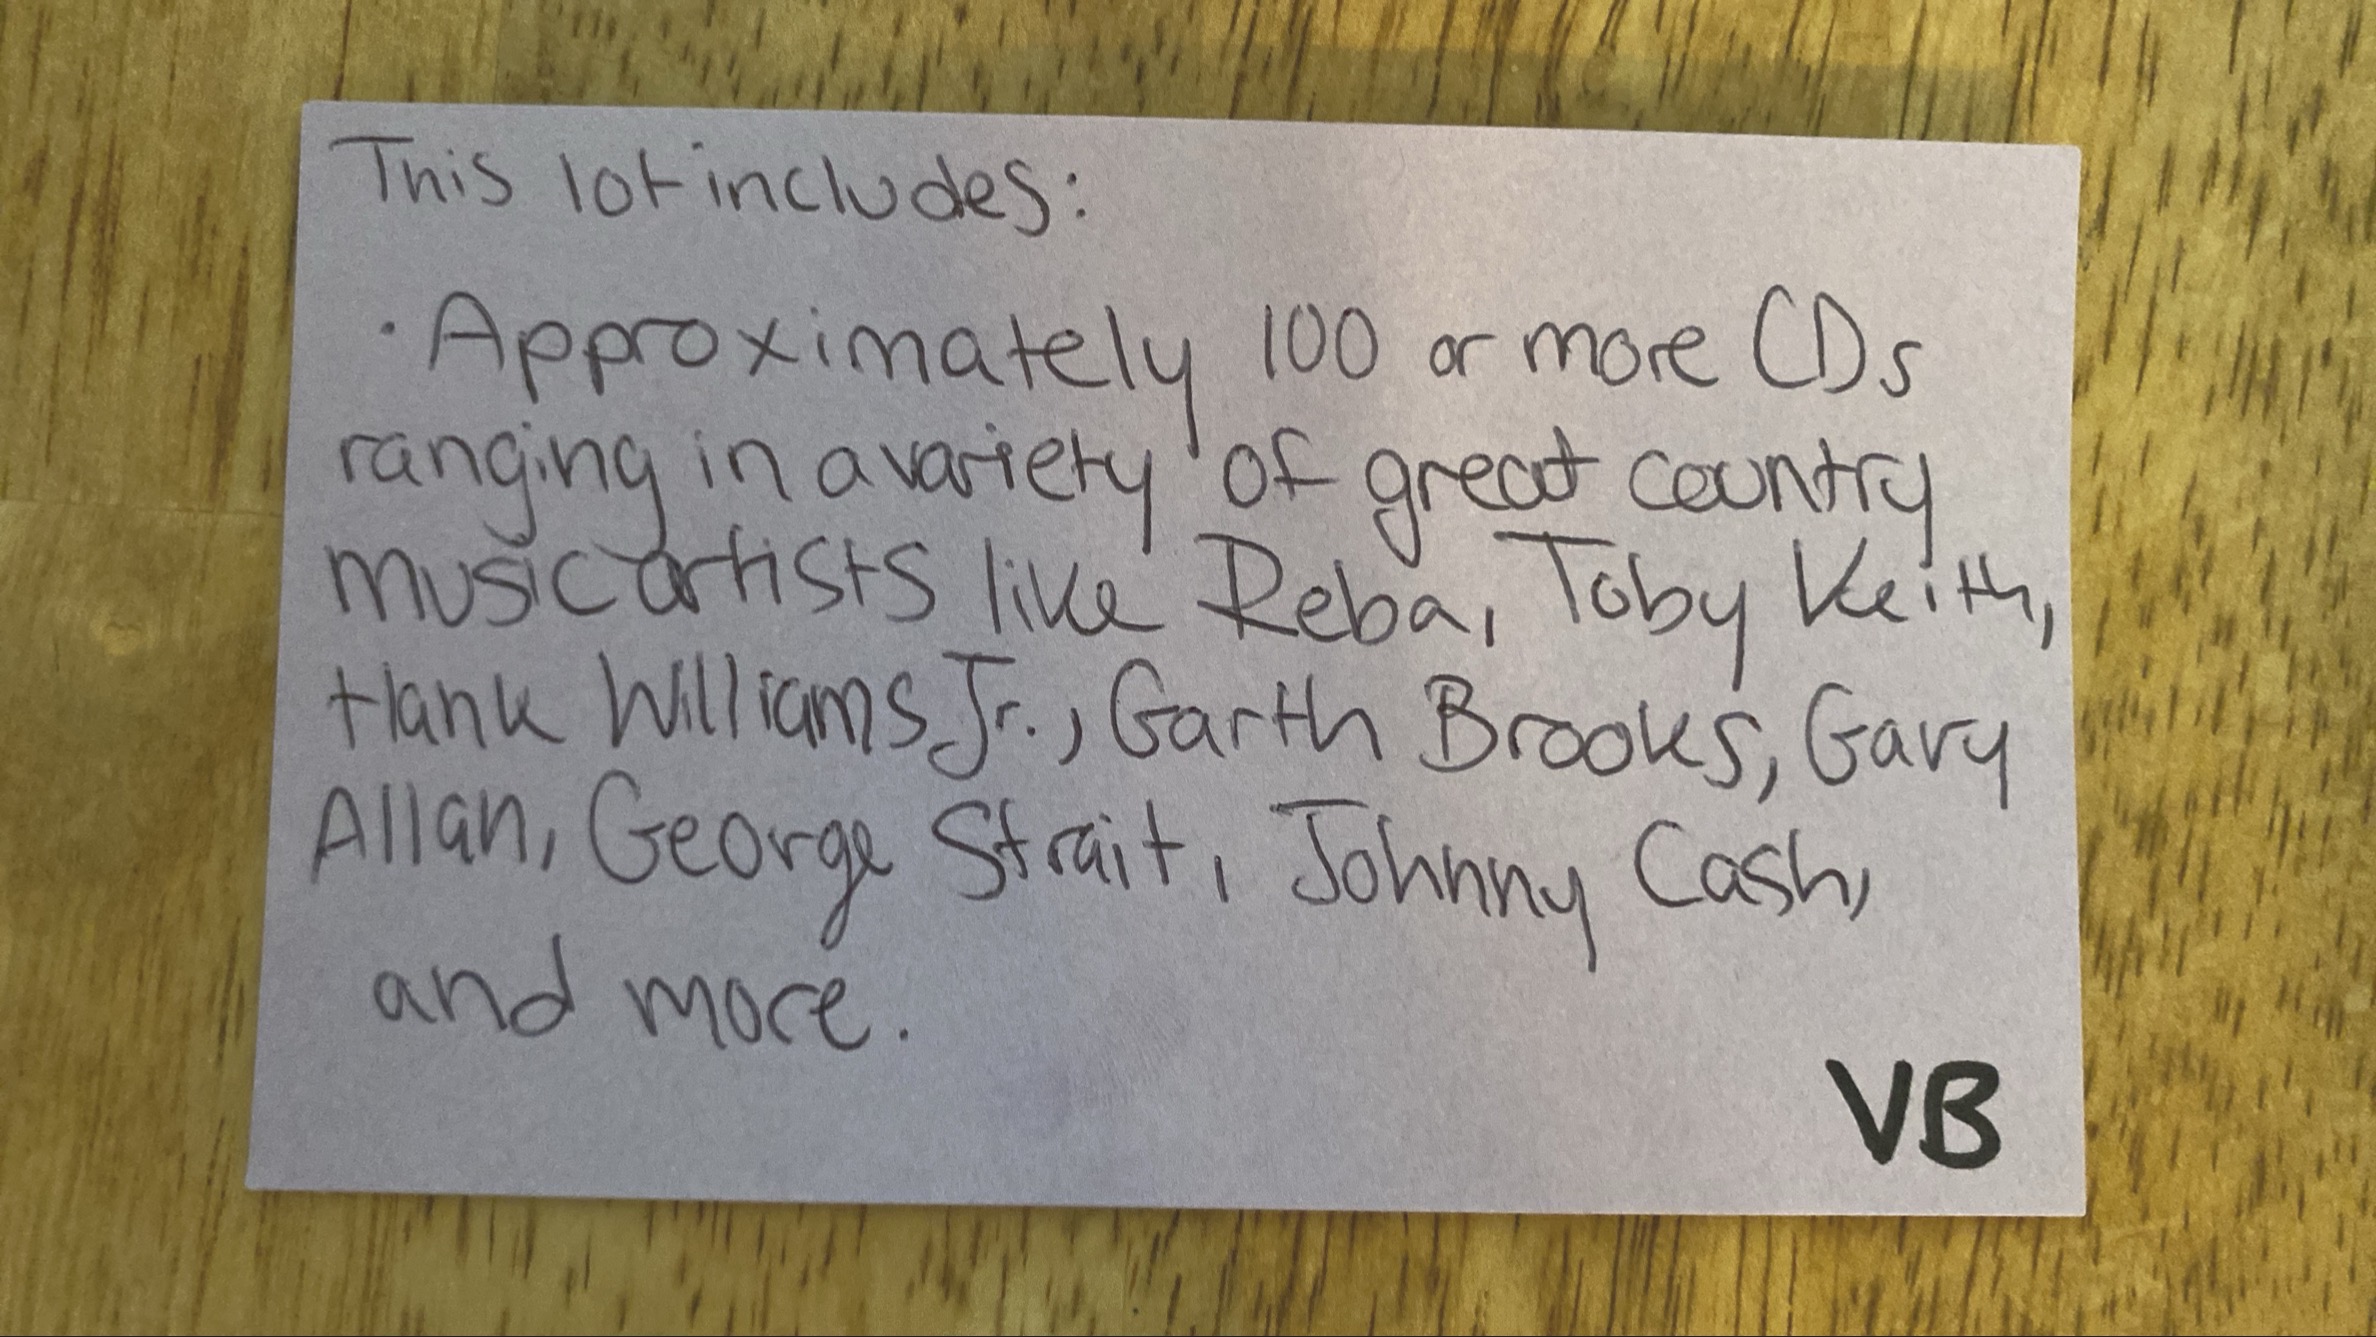 This lot includes:
· Approximately 100 or more CDs
ranging in a variety of great country
music artists like Reba, Toby Keith,
Hank Williams Jr., Garth Brooks, Gary
Allan, George Strait, Johnny Cash,
and more.
VB